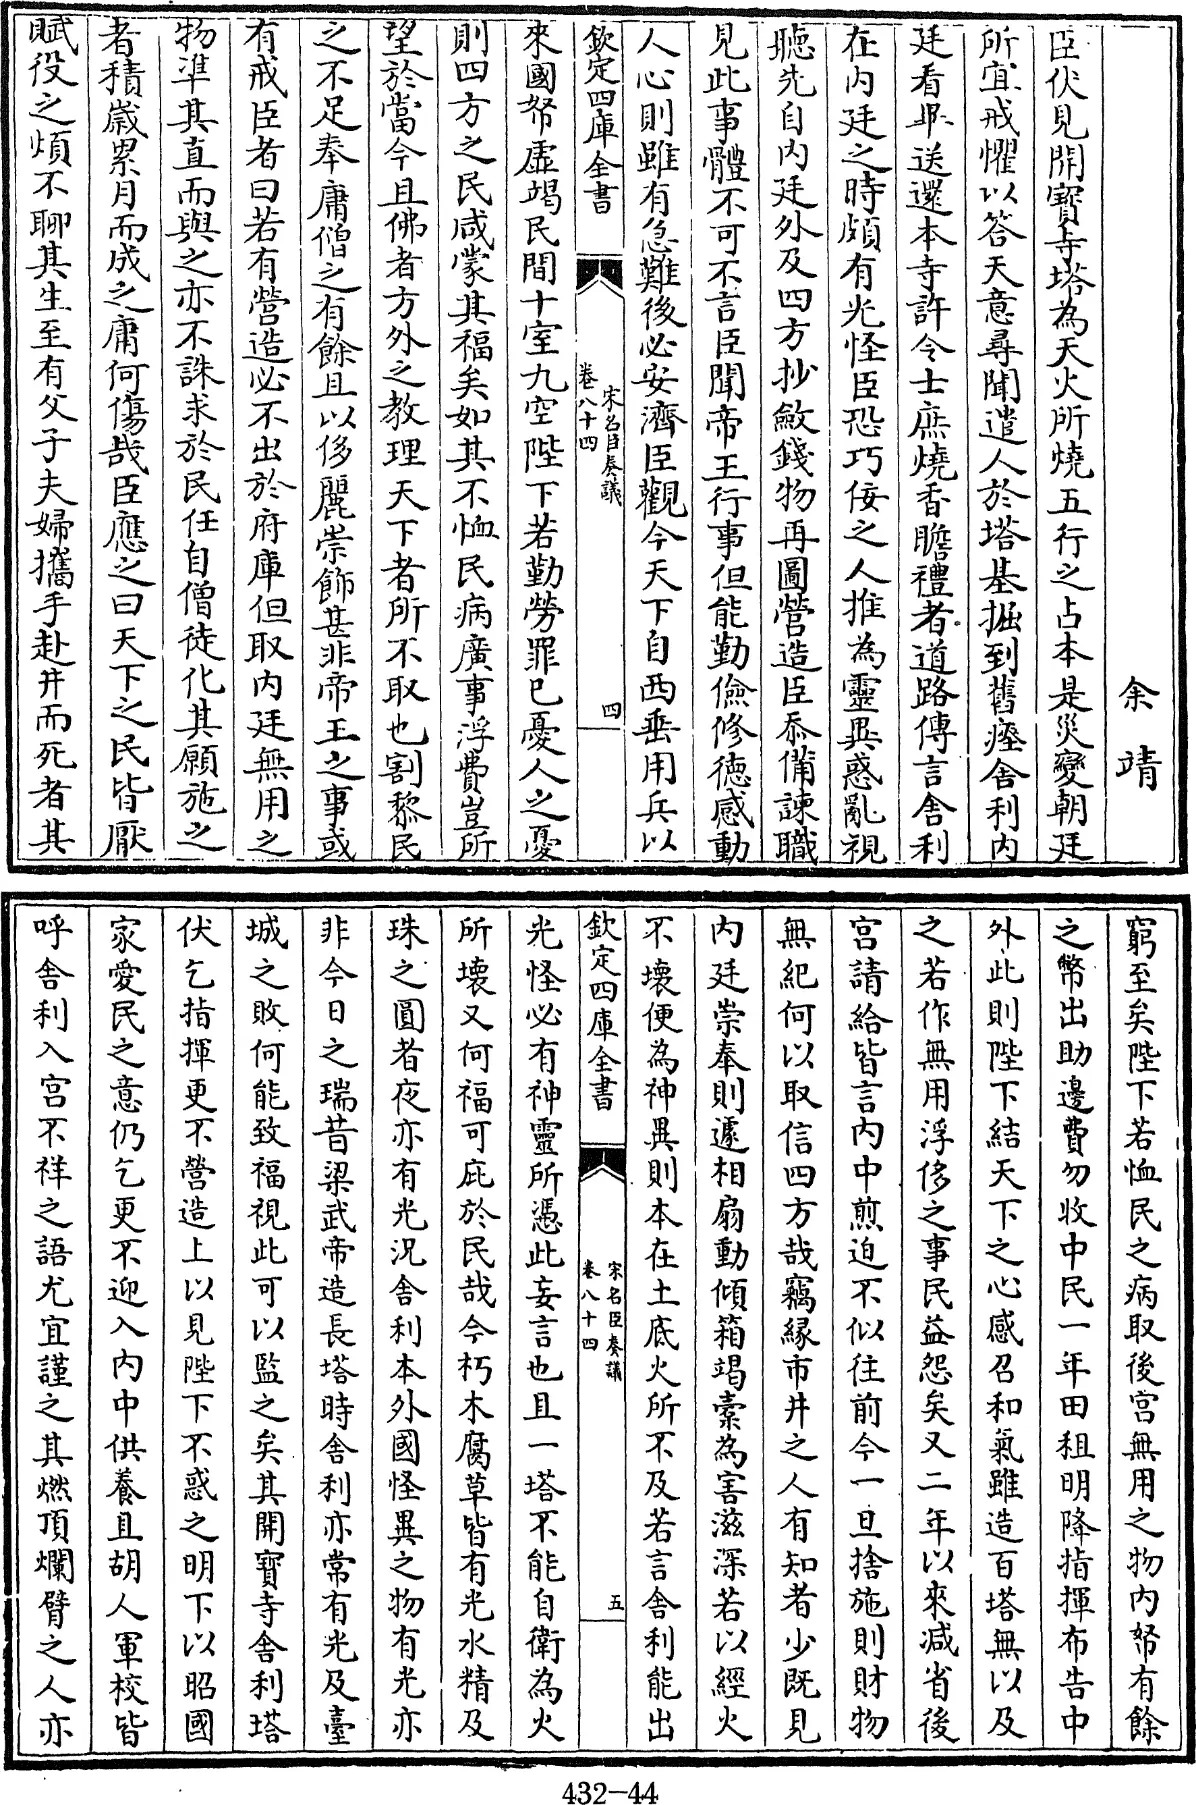 余靖
臣伏見開寶寺塔為天火所燒五行之占本是災變朝廷
所宜戒懼以答天意尋聞遣人於塔基掘到舊瘞舍利內
廷看畢送還本寺許令士庶燒香瞻禮者道路傳言舍利
在內廷之時頗有光怪臣恐巧佞之人推為靈異惑亂視
聽先自內廷外及四方抄斂錢物再圖營造臣忝備諫職
見此事體不可不言臣聞帝王行事但能勤儉修德感動
人心則雖有急難後必安濟臣觀今天下自西垂用兵以
欽定四庫全書
宋名臣奏議
卷八十四
四
來國帑虛竭民間十室九空陛下若勤勞罪己憂人之憂
則四方之民咸蒙其福矣如其不恤民病廣事浮費豈所
望於當今且佛者方外之教理天下者所不取也割黎民
之不足奉庸僧之有餘且以侈麗崇飾甚非帝王之事或
有戒臣者曰若有營造必不出於府庫但取內廷無用之
物準其直而與之亦不誅求於民任自僧徒化其願施之
者積歲累月而成之庸何傷哉臣應之曰天下之民皆厭
賦役之煩不聊其生至有父子夫婦攜手赴井而死者其
窮至矣陛下若恤民之病取後宮無用之物內帑有餘
之幣出助邊費勿收中民一年田租明降指揮布告中
外此則陛下結天下之心感召和氣雖造百塔無以及
之若作無用浮侈之事民益怨矣又二年以來減省後
宮請給皆言內中煎迫不似往前今一旦捨施則財物
無紀何以取信四方哉竊緣市井之人有知者少既見
內廷崇奉則遞相扇動傾箱竭橐為害滋深若以經火
不壞便為神異則本在土底火所不及若言舍利能出
欽定四庫全書
宋名臣奏議
卷八十四
五
光怪必有神靈所憑此妄言也且一塔不能自衛為火
所壞又何福可庇於民哉今朽木腐草皆有光水精及
珠之圓者夜亦有光況舍利本外國怪異之物有光亦
非今日之瑞昔梁武帝造長塔時舍利亦常有光及臺
城之敗何能致福視此可以監之矣其開寶寺舍利塔
伏乞指揮更不營造上以見陛下不惑之明下以昭國
家愛民之意仍乞更不迎入內中供養且胡人軍校皆
呼舍利入宮不祥之語尤宜謹之其燃頂爛臂之人亦
432-44